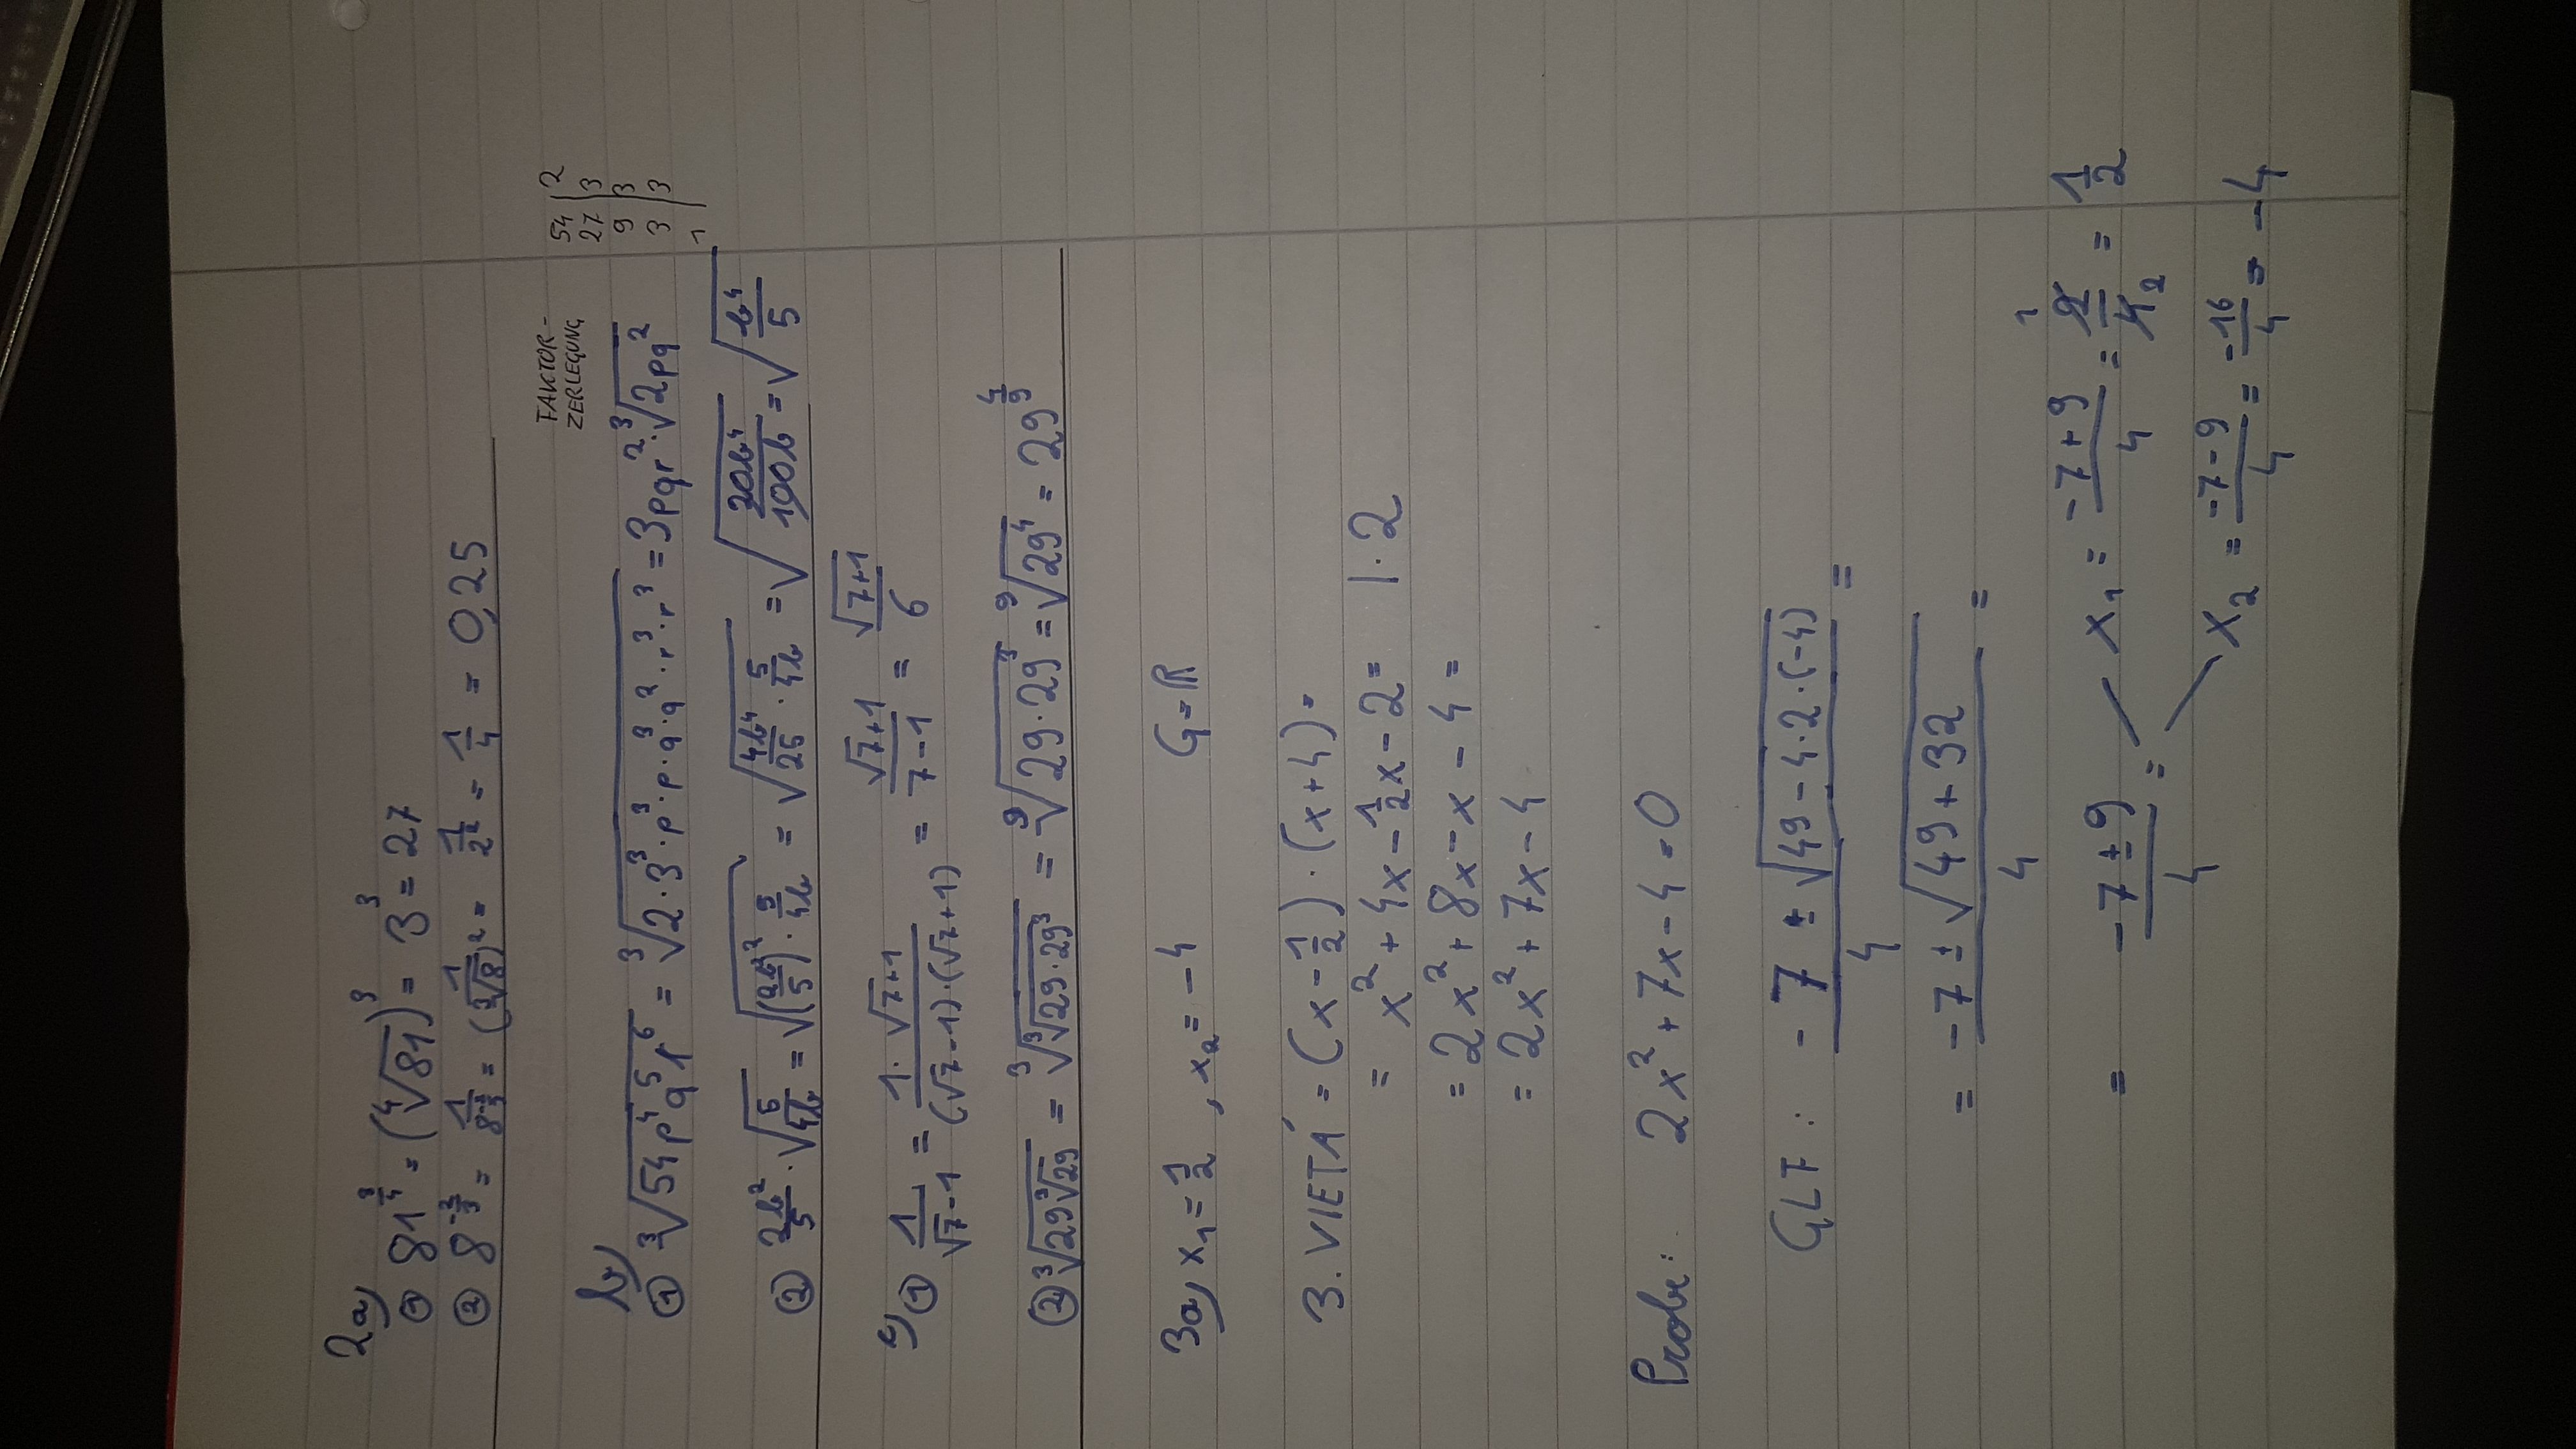 2a)
① 81^(3/4) = (⁴√81)³ = 3³ = 27
② 8^(-2/3) = 1/8^(-2/3) = 1/(³√8)² = 1/2² = 1/4 = 0,25
FAKTOR-
ZERLEGUNG
54 | 2
27 | 3
9 | 3
3 | 3
1 |
b)
① ³√(54p⁴q⁵r⁶) = ³√(2·3³·p³·p·q³·q²·r³·r³) = 3pqr²·³√(2pq²)
② 2b²/5 · √(5/4b) = √((2b²/5)² · 5/4b) = √(4b⁴/25 · 5/4b) = √(20b⁴/100b) = √(b⁴/5)
c) ① 1/(√7-1) = (1·√7+1)/((√7-1)·(√7+1)) = (√7+1)/(7-1) = (√7+1)/6
② ³√(29 ³√29) = ³√(³√(29·29³)) = ⁹√(29·29³) = ⁹√(29⁴) = 29^(4/9)
3a) x₁ = 1/2 , x₂ = -4 G = ℝ
3. VIETÁ = (x - 1/2) · (x+4) =
= x² + 4x - 1/2x - 2 = |·2
= 2x² + 8x - x - 4 =
= 2x² + 7x - 4
Probe: 2x² + 7x - 4 = 0
GLF : (-7 ± √(49 - 4·2·(-4)))/4 =
= (-7 ± √(49 + 32))/4 =
= (-7 ± 9)/4 =
x₁ = (-7+9)/4 = 2/4 1 2 = 1/2
x₂ = (-7-9)/4 = -16/4 = -4